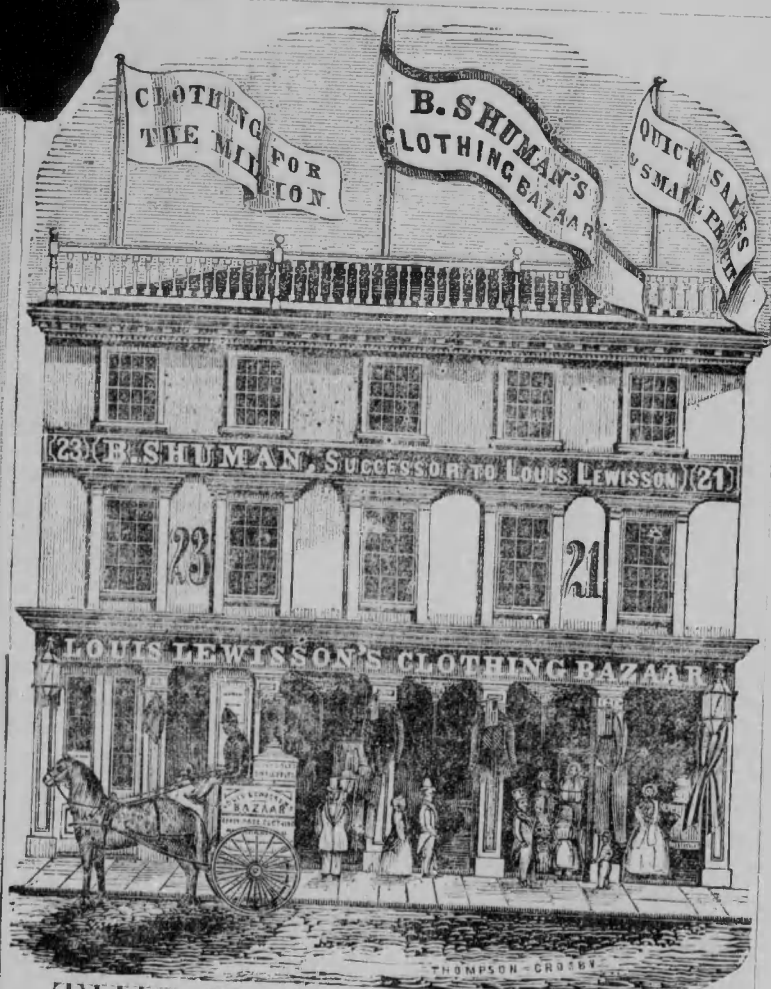 CLOTHING FOR
THE MILLION
B. SHUMAN'S
CLOTHING BAZAAR
QUICK SALES
& SMALL PROFIT
(23) (B. SHUMAN, SUCCESSOR TO LOUIS LEWISSON) (21)
23
21
LOUIS LEWISSON'S CLOTHING BAZAAR
BAZAAR
THOMPSON-CROSBY